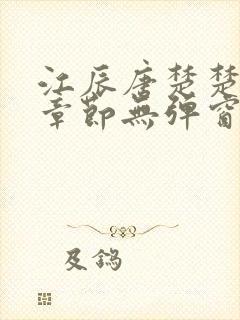 江辰唐楚楚
章節無彈窗
及鎢